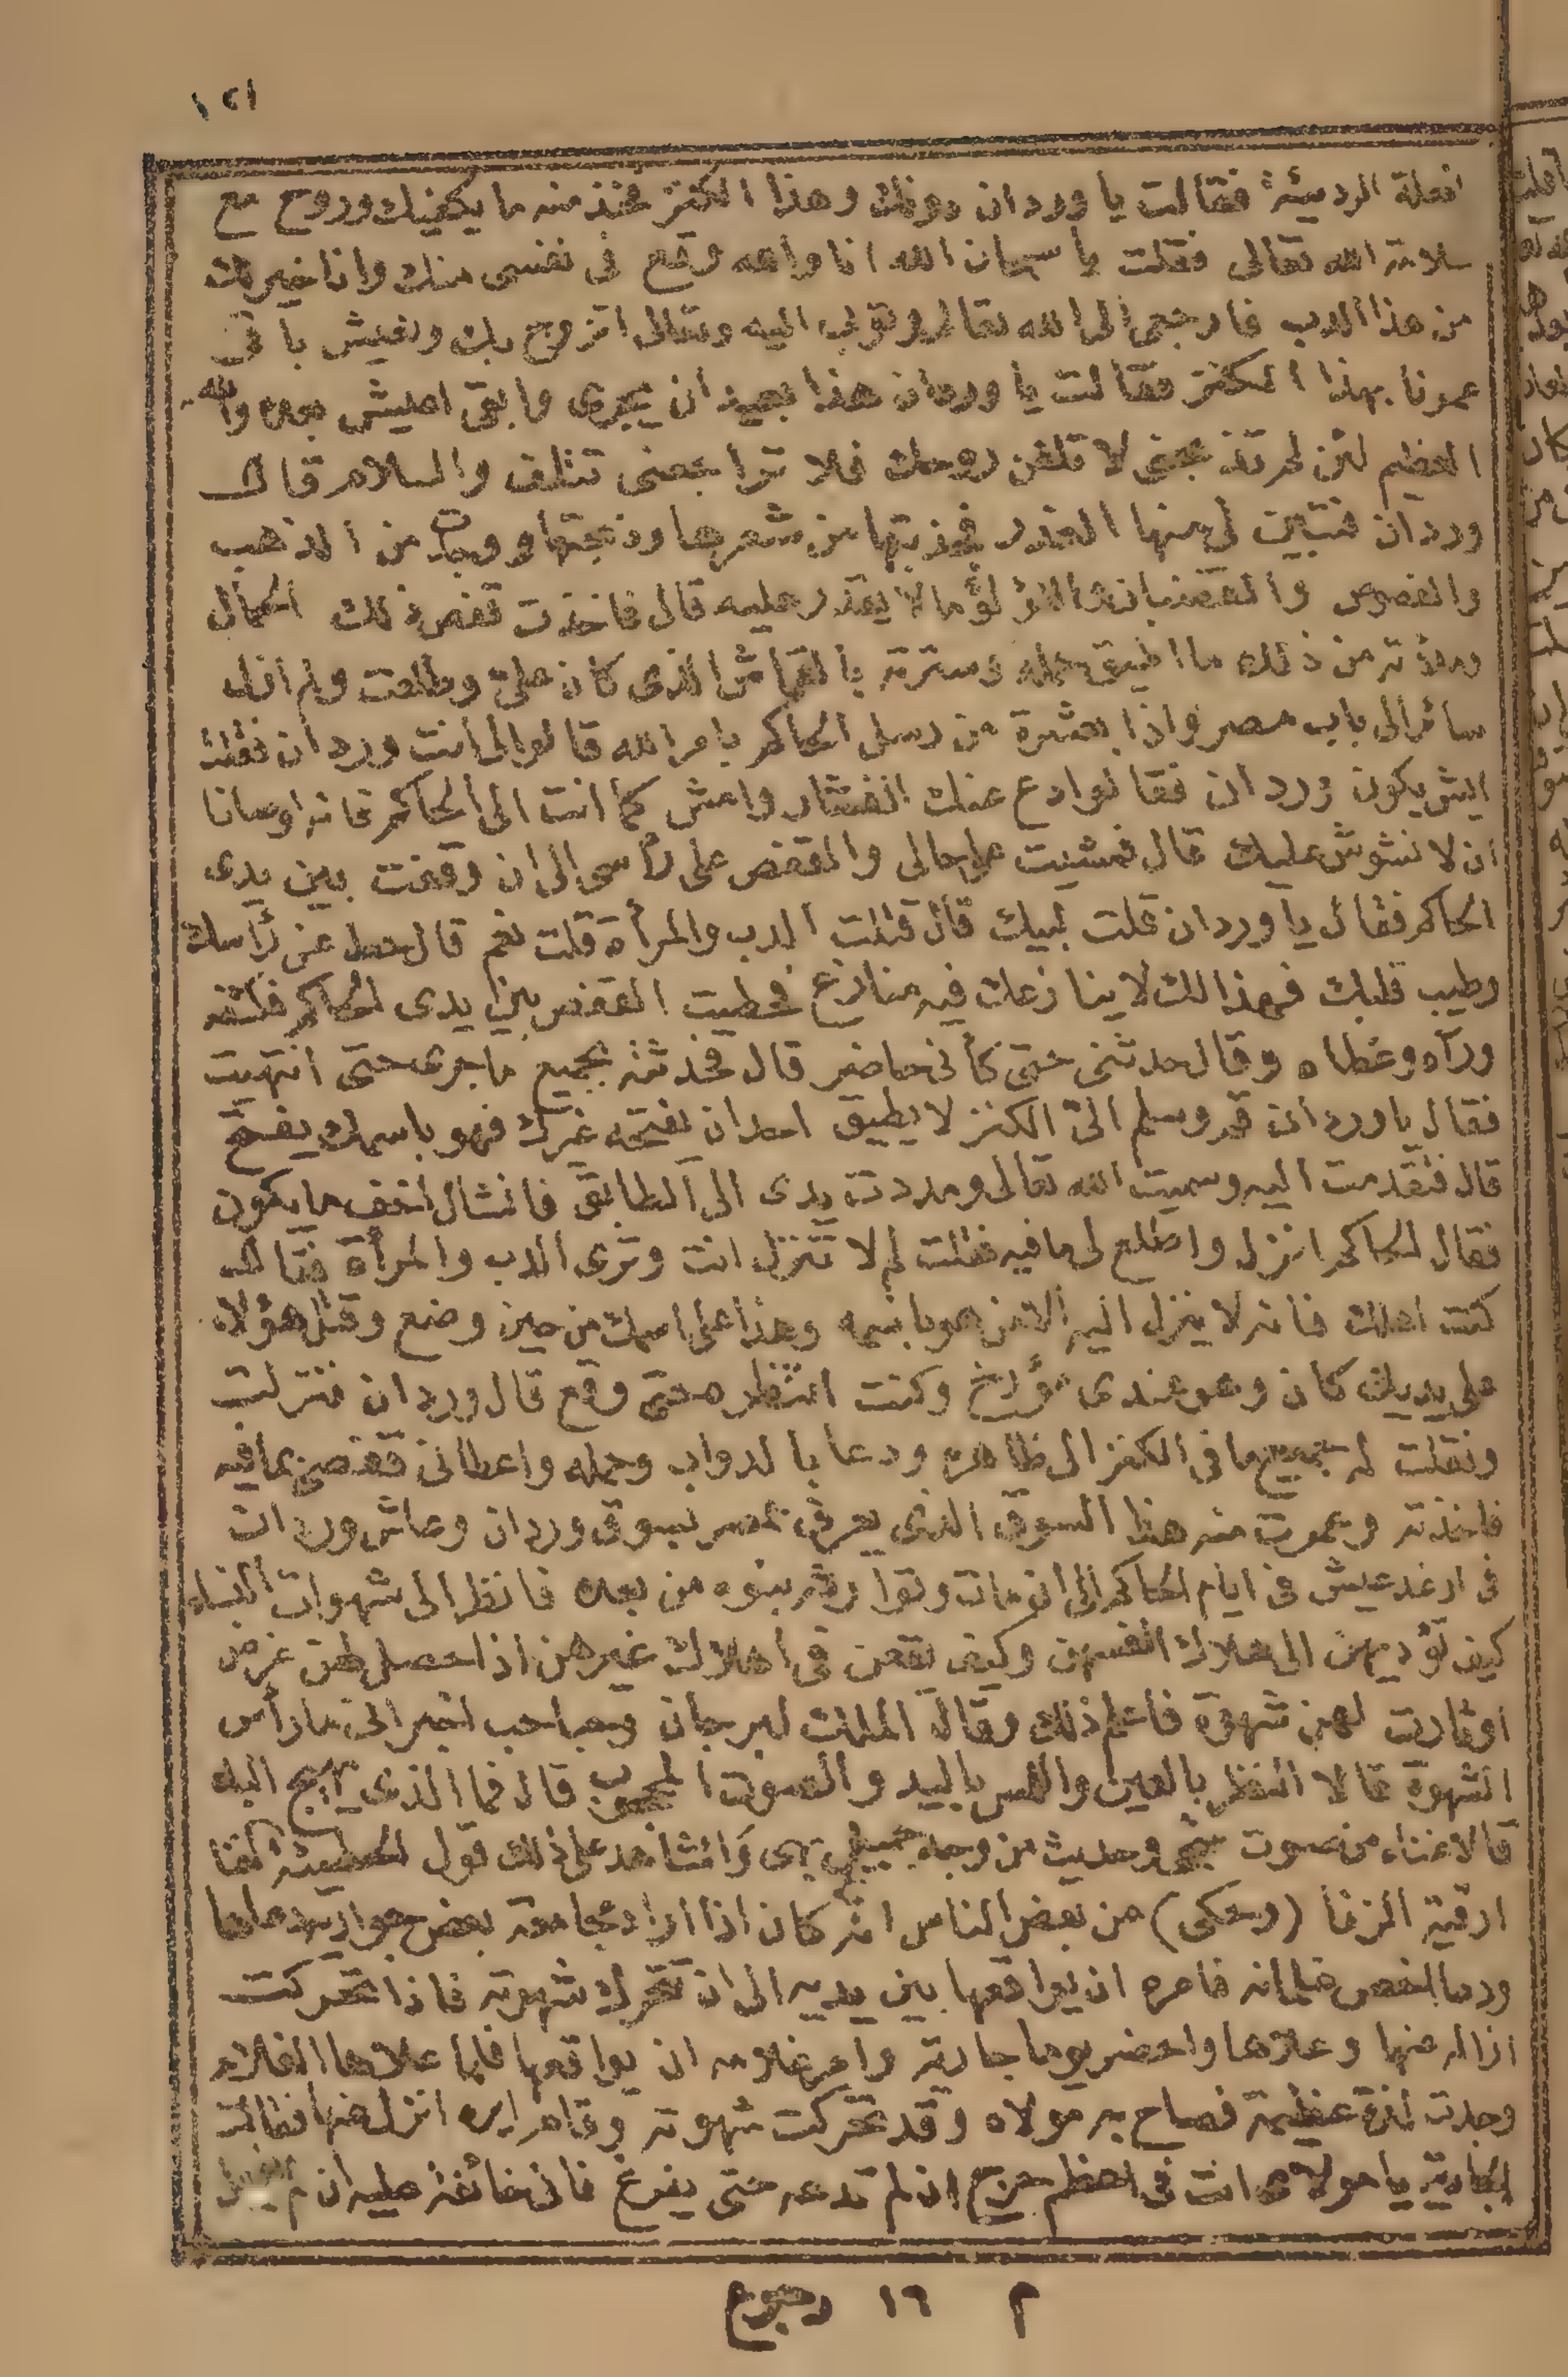 ١٢١
الفعلة الرديئة فقالت يا وردان دونك وهذا الكنز فخذ منه ما يكفيك وروح مع
سلامة الله تعالى فقلت يا سبحان الله انا والله وقع فى نفسى منك وانا خير لك
من هذا الدب فارجعى الى الله تعالى وتوبى اليه وتعالى اتزوج بك ونعيش باقى
عمرنا بهذا الكنز فقالت يا وردان هذا بعيد ان يجرى ما بقى اعيش بعده والله
العظيم لئن لم تذبحنى لا تلفن روحك فلا تراجعنى تتلف والسلام قال
وردان فتبين لى منها الغدر فجذبتها من شعرها وذبحتها ووجدت من الذهب
والفصوص والقضبان واللؤلؤ ما لا يقدر عليه قال فاخذت قفص ذلك الحمال
وملأته من ذلك ما اطيق حمله وسترته بالقماش الذى كان على وطلعت ولم ازل
سائرا الى باب مصر واذا بعشرة من رسل الحاكم بامر الله قالوا لى انت وردان فقلت
ايش يكون وردان فقالوا دع عنك الفشار وامش كما انت الى الحاكم فانه اوصانا
ان لا نشوش عليك قال فمشيت على حالى والقفص على رأسى الى ان وقفت بين يدى
الحاكم فقال يا وردان قلت لبيك قال قتلت الدب والمرأة قلت نعم قال حط عن رأسك
وطيب قلبك فهذا لك لا ينازعك فيه منازع فحطيت القفص بين يدى الحاكم فكشفه
ورآه وغطاه وقال حدثنى حتى كأنى حاضر قال فحدثته بجميع ما جرى حتى انتهيت
فقال يا وردان قم وسلم الى الكنز لا يطيق احد ان يفتحه غيرك فهو باسمك يفتح
قال فتقدمت اليه وسميت الله تعالى ومددت يدى الى الطابق فانشال اخف ما يكون
فقال الحاكم انزل واطلع لى ما فيه فقلت لم لا تنزل انت وترى الدب والمرأة فقال
كنت اهلك فانه لا ينزل اليه الا من هو باسمه وهذا على اسمك من حين وضع وقتل هؤلاء
على يديك كان وهو عندى مؤرخ وكنت انتظره حتى وقع قال وردان فنزلت
ونقلت له جميع ما فى الكنز الى ظاهره ودعا بالدواب وحمله واعطانى قفصى بما فيه
فاخذته وعمرت منه هذا السوق الذى يعرف بمصر بسوق وردان وعاش وردان
فى ارغد عيش فى ايام الحاكم الى ان مات وتوارثه بنوه من بعده فانظر الى شهوات النساء
كيف تؤديهن الى هلاك انفسهن وكيف يقعن فى اهلاك غيرهن اذا حصل لهن غرض
او ثارت لهن شهوة فاعلم ذلك وقال الملك لبرجان وصاحب اخبرانى ما رأس
الشهوة قالا النظر بالعين واللمس باليد والصوت المحبوب قال فما الذى يهيج اليه
قالا غناء من صوت شجى وحديث من وجه جميل بهى والشاهد على ذلك قول الحطيئة الغنا
ارقية الزنا (وحكى) من بعض الناس انه كان اذا اراد مجامعة بعض جواريه دعاها
ودعا بعض غلمانه فامره ان يواقعها بين يديه الى ان تتحرك شهوته فاذا تحركت
ازاله عنها وعلاها واحضر يوما جارية وامر غلامه ان يواقعها فلما علاها الغلام
وجدت لذة عظيمة فصاح به مولاه وقد تحركت شهوته وقام ايره انزل عنها فقالت
الجارية يا مولاى انت فى اعظم حرج ان لم تدعه حتى يفرغ فانى خائفة عليه ان لم
م ١٦ رجوع